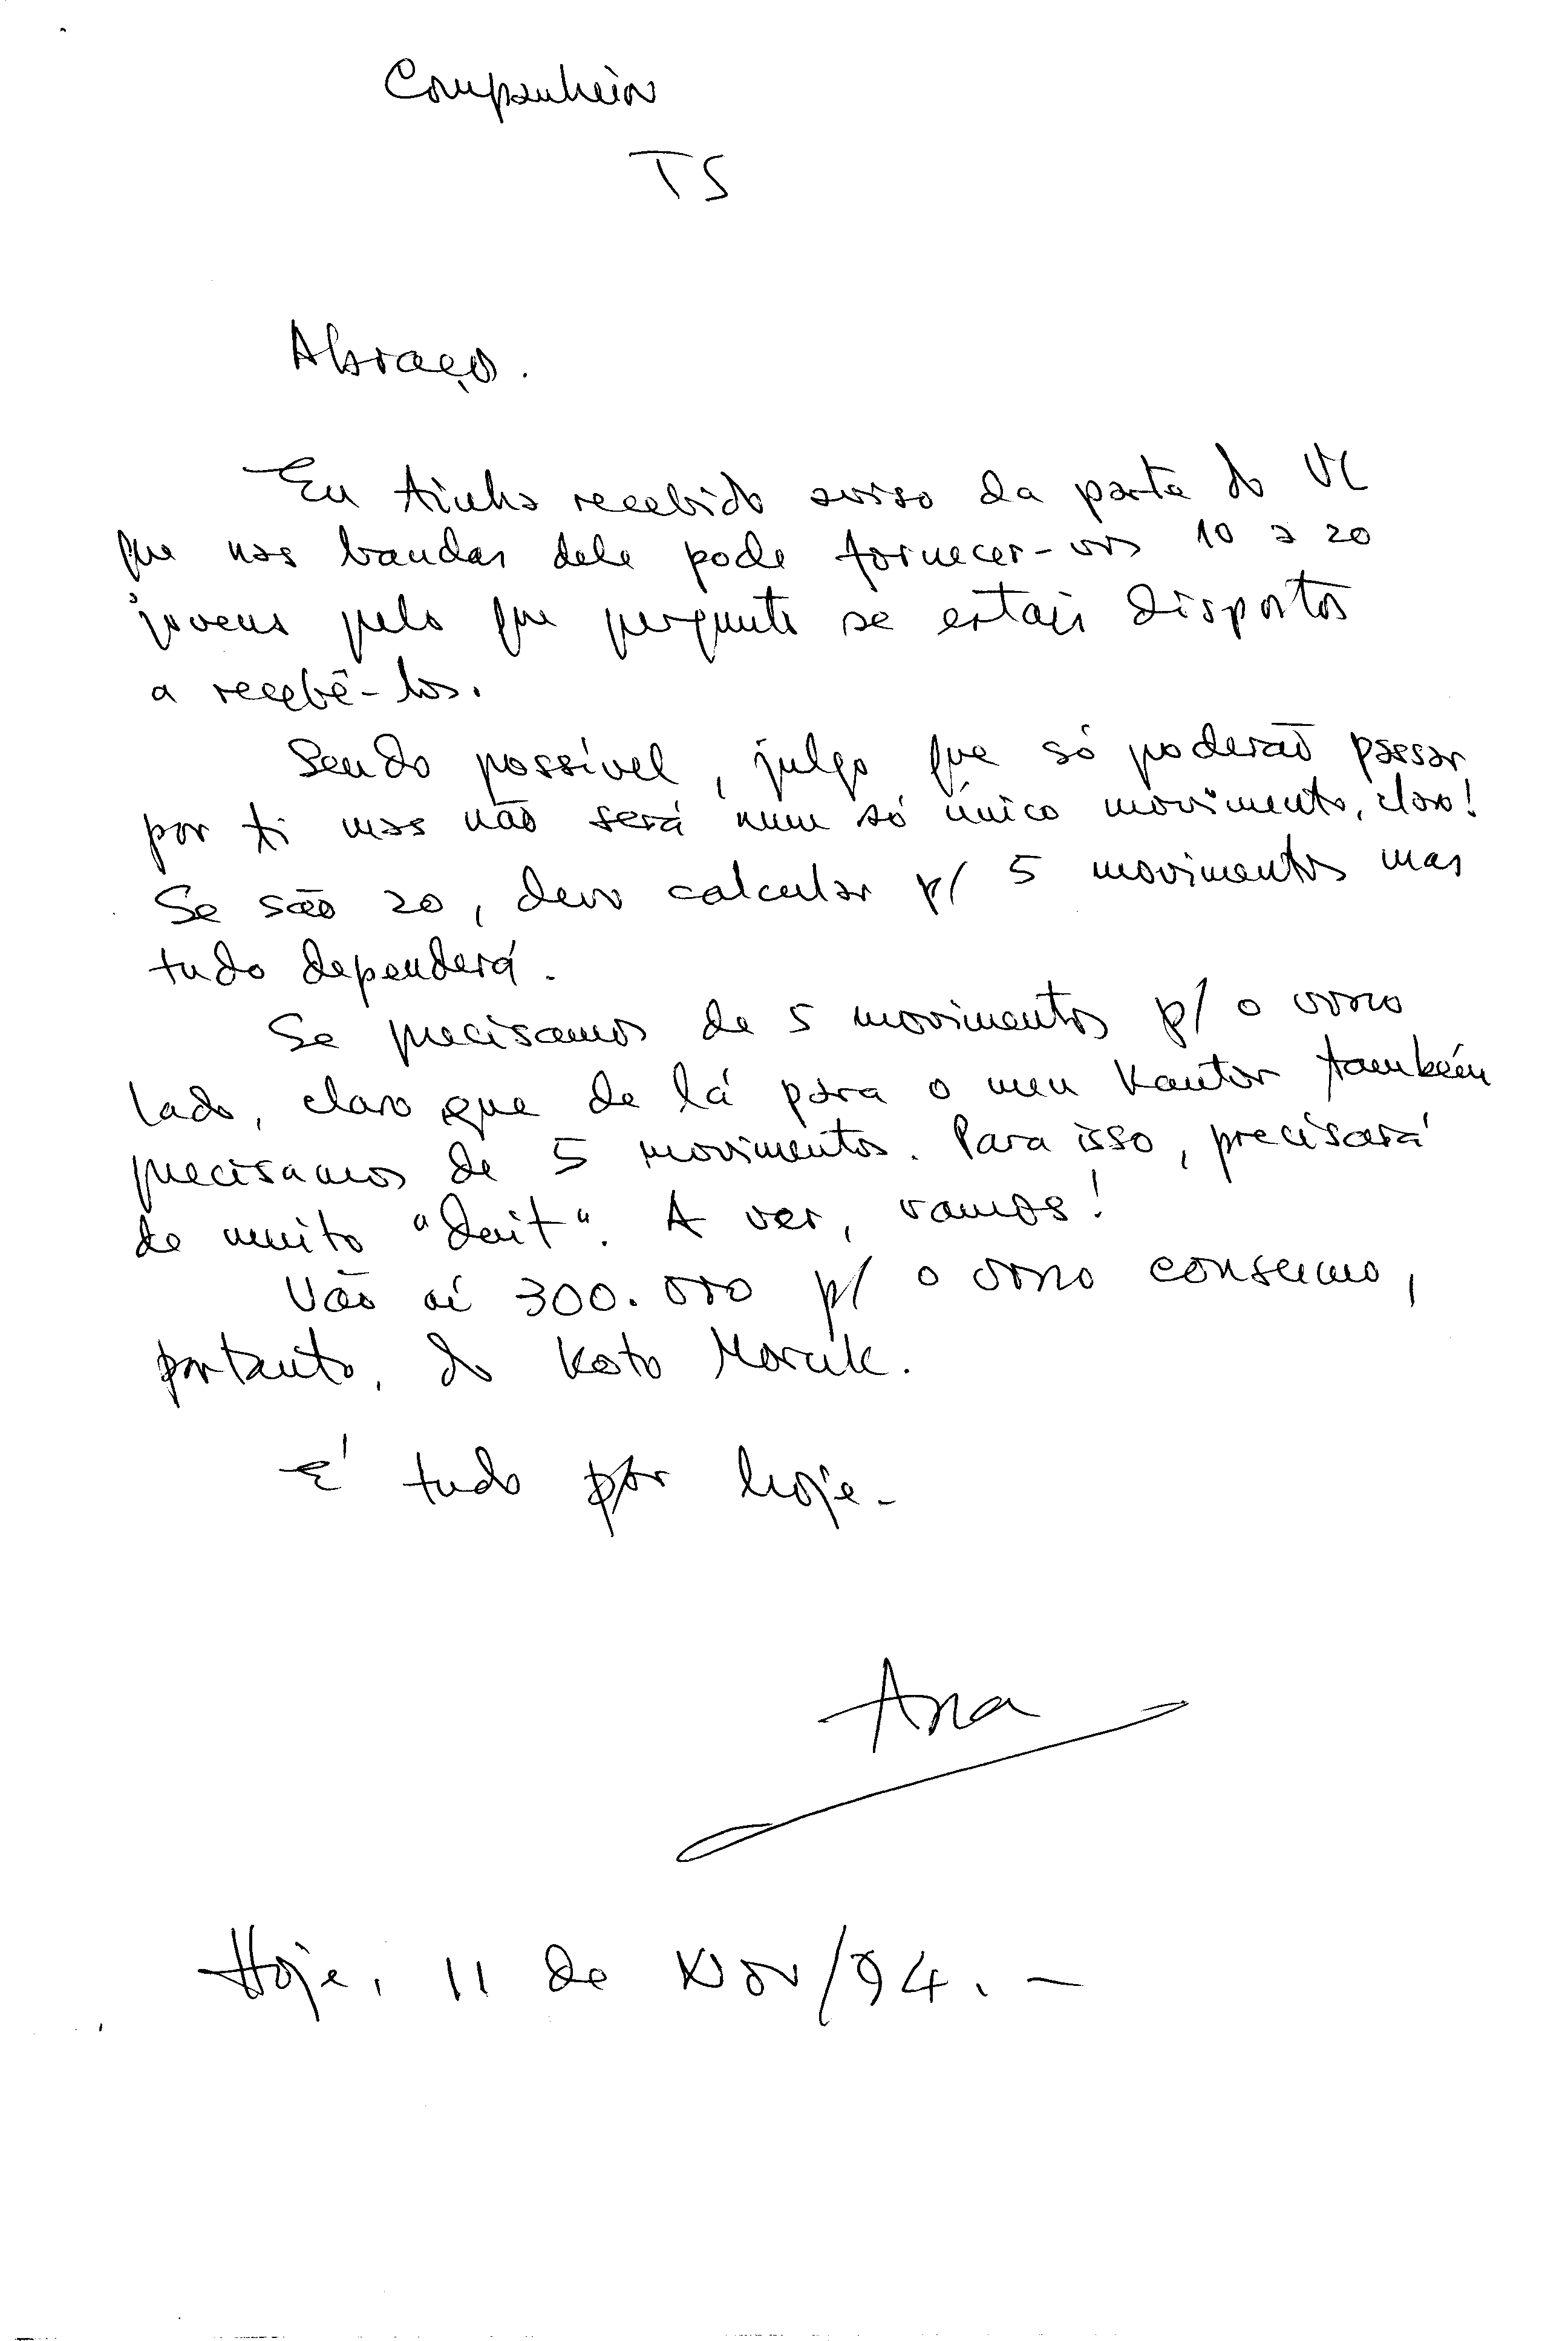 Companheiro
TS
Abraço.
Eu tinha recebido aviso da parte do VC
que nas bandas dele pode fornecer-vos 10 a 20
jovens pelo que pergunto se estais dispostos
a recebê-los.
Sendo possível, julgo que só poderão passar
por ti mas não será num só único movimento, claro!
Se são 20, devo calcular p/ 5 movimentos mas
tudo dependerá.
Se precisamos de 5 movimentos p/ o vosso
lado, claro que de lá para o meu Kantor também
precisamos de 5 movimentos. Para isso, precisará
de muito "doit". A ver, vamos!
Vão aí 300.000 p/ o vosso consumo,
portanto, do Koto Moruk.
É tudo por hoje.-
Ana
Hoje, 11 de Nov/94.-